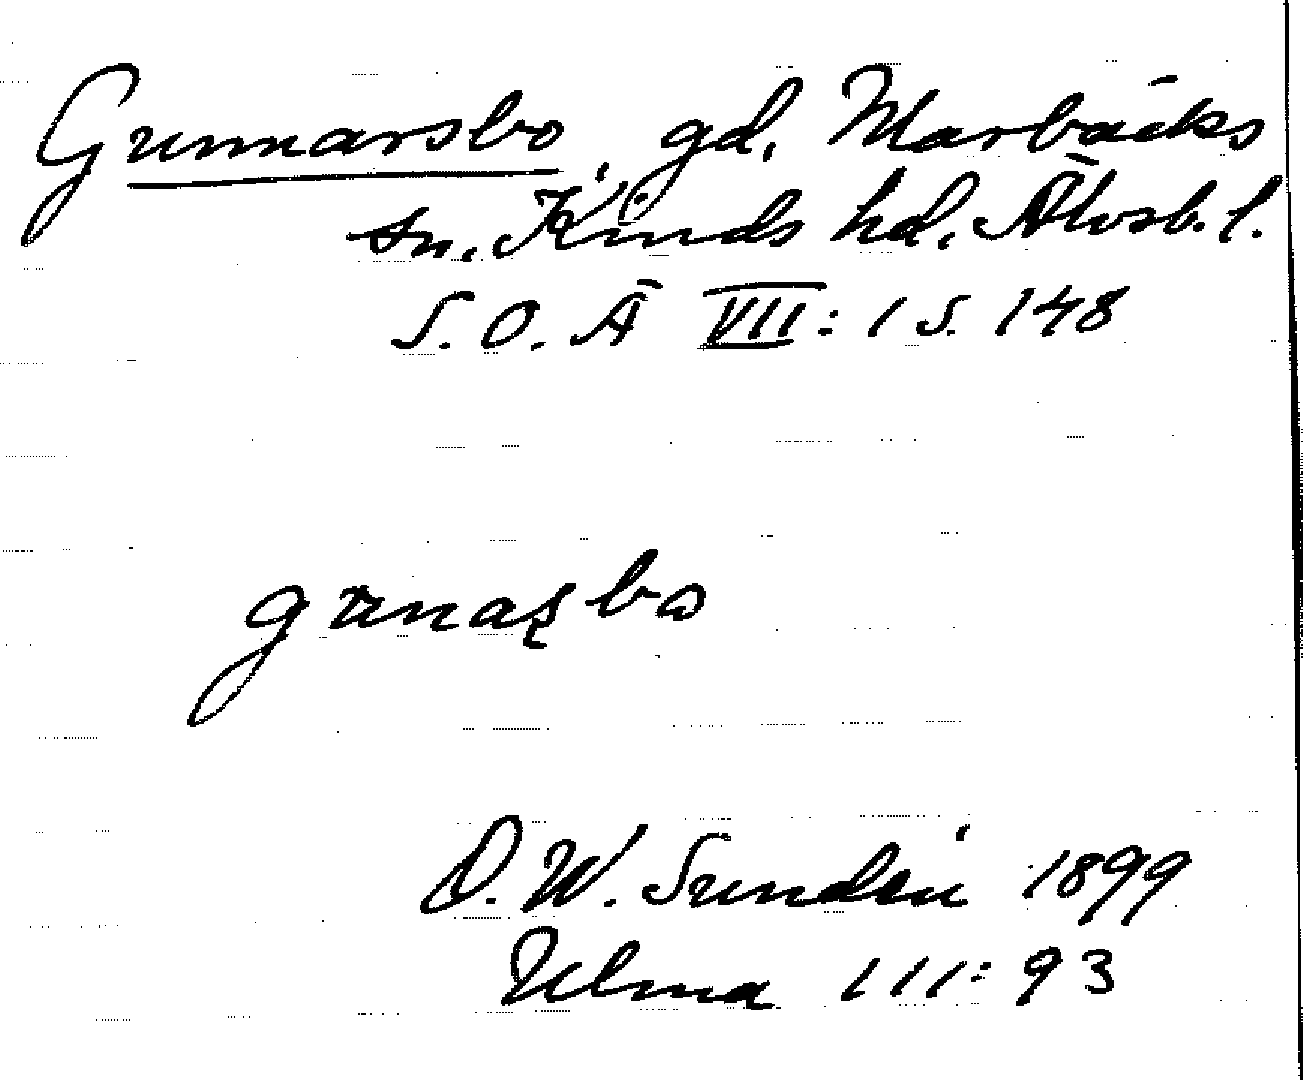 Gunnarsbo, gd, Marbäcks
sn. Kinds hd. Älvsb. l.
S. O. Ä VII: 1 s. 148
D. W. Sundén 1899
Ulma 111: 93